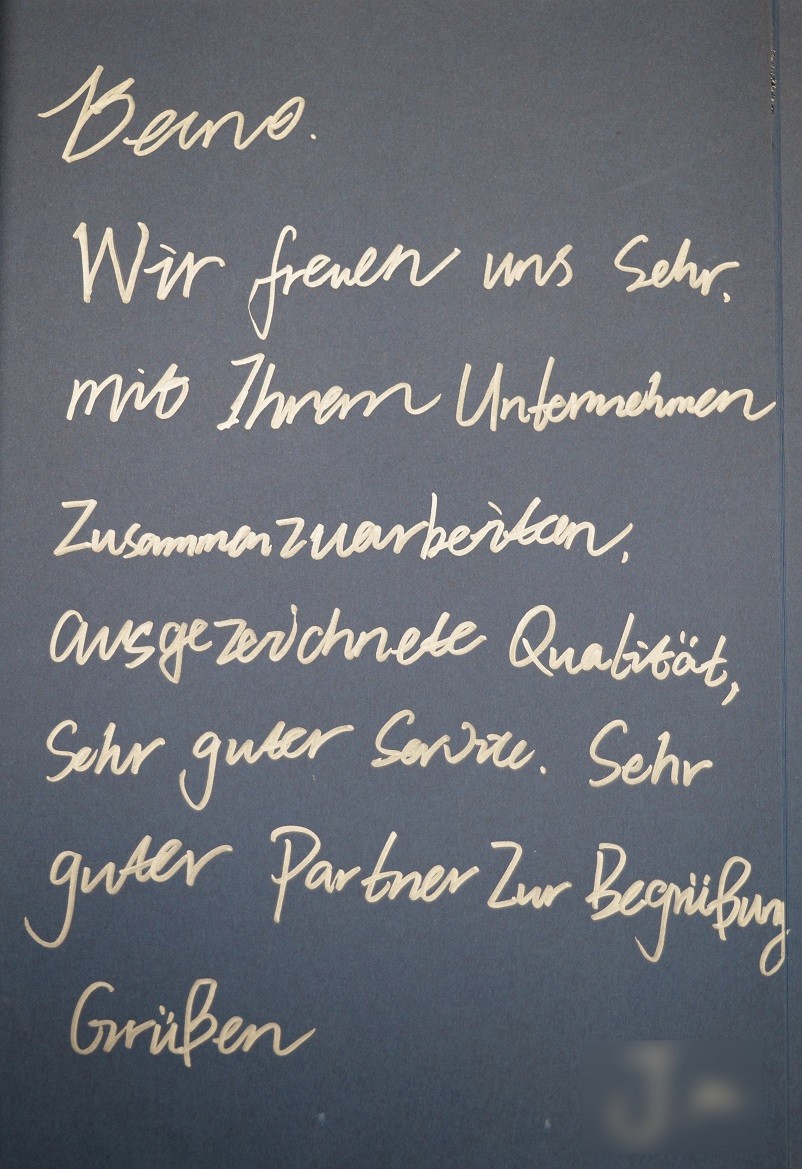 Beano.
Wir freuen uns Sehr,
mit Ihrem Unternehmen
Zusammenzuarbeiten,
ausgezeichnete Qualität,
Sehr guter Service. Sehr
guter Partner Zur Begrüßung
Grüßen